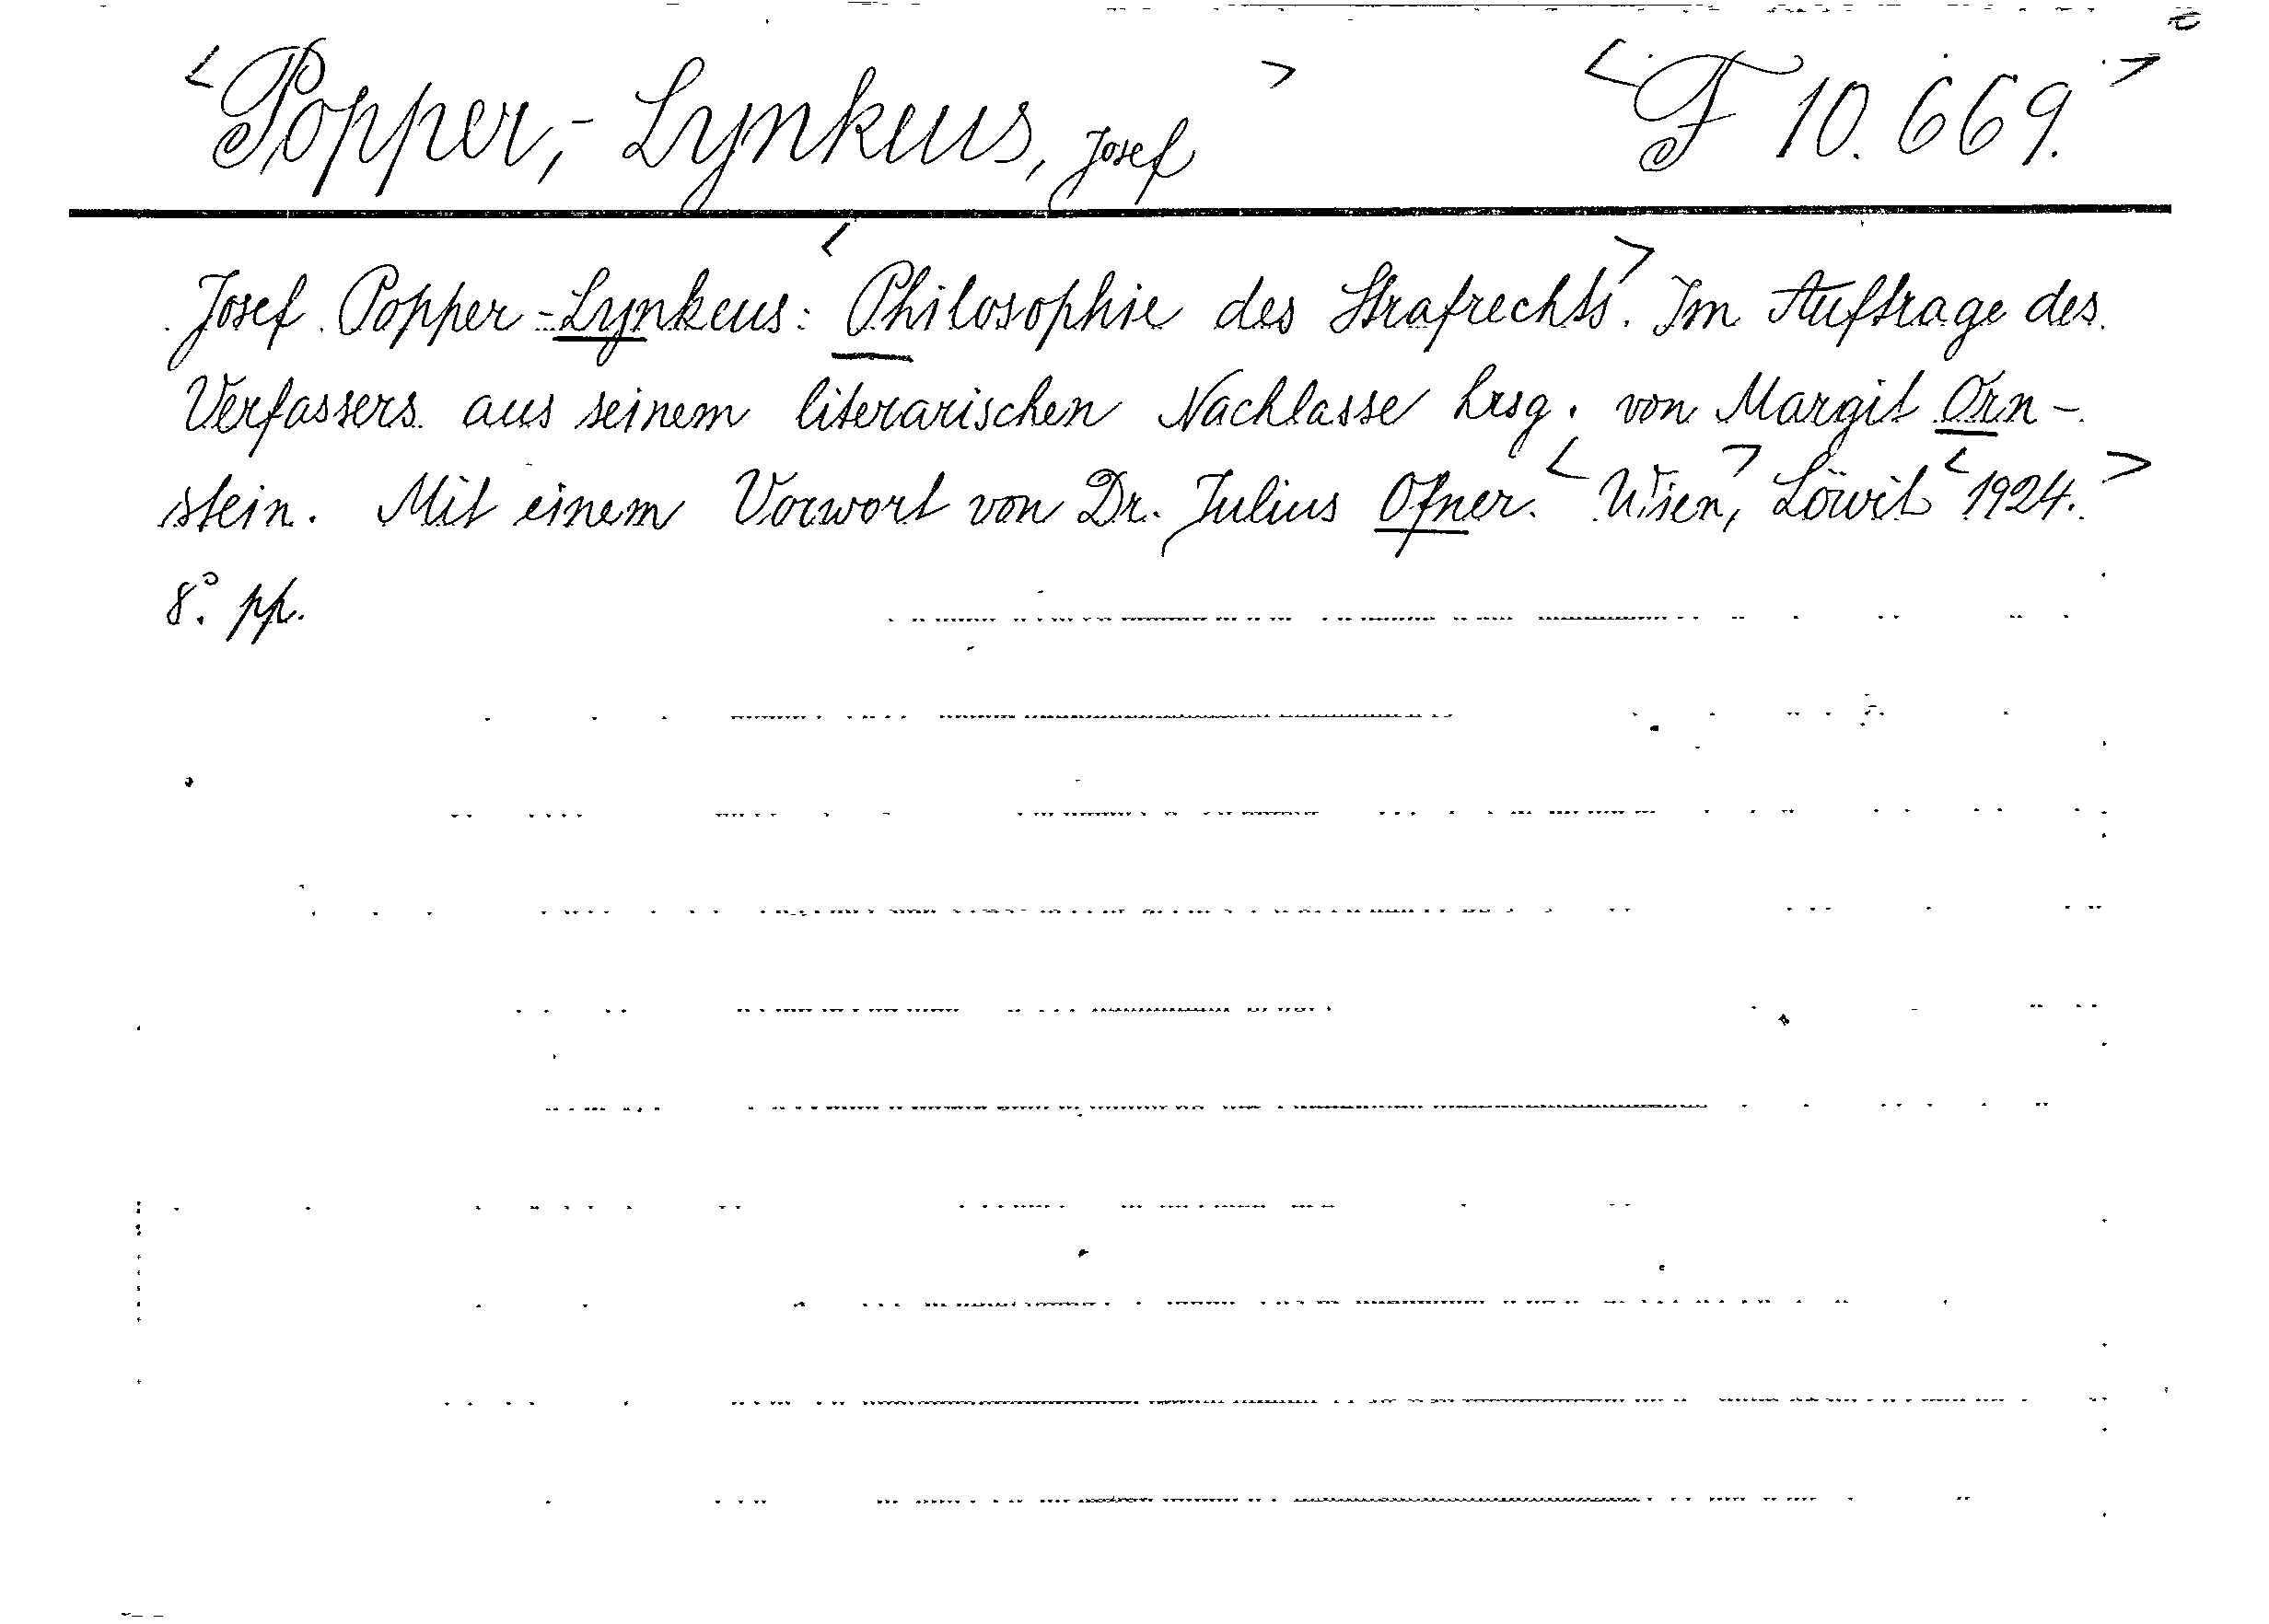 <Popper,-Lynkeus, Josef> <F 10.669.>
Josef Popper-Lynkeus: <Philosophie des Strafrechts>. Im Auftrage des
Verfassers aus seinem literarischen Nachlasse hrsg. von Margit Orn-
stein. Mit einem Vorwort von Dr. Julius Ofner. <Wien>, Löwit <1924.>
8°. pp.